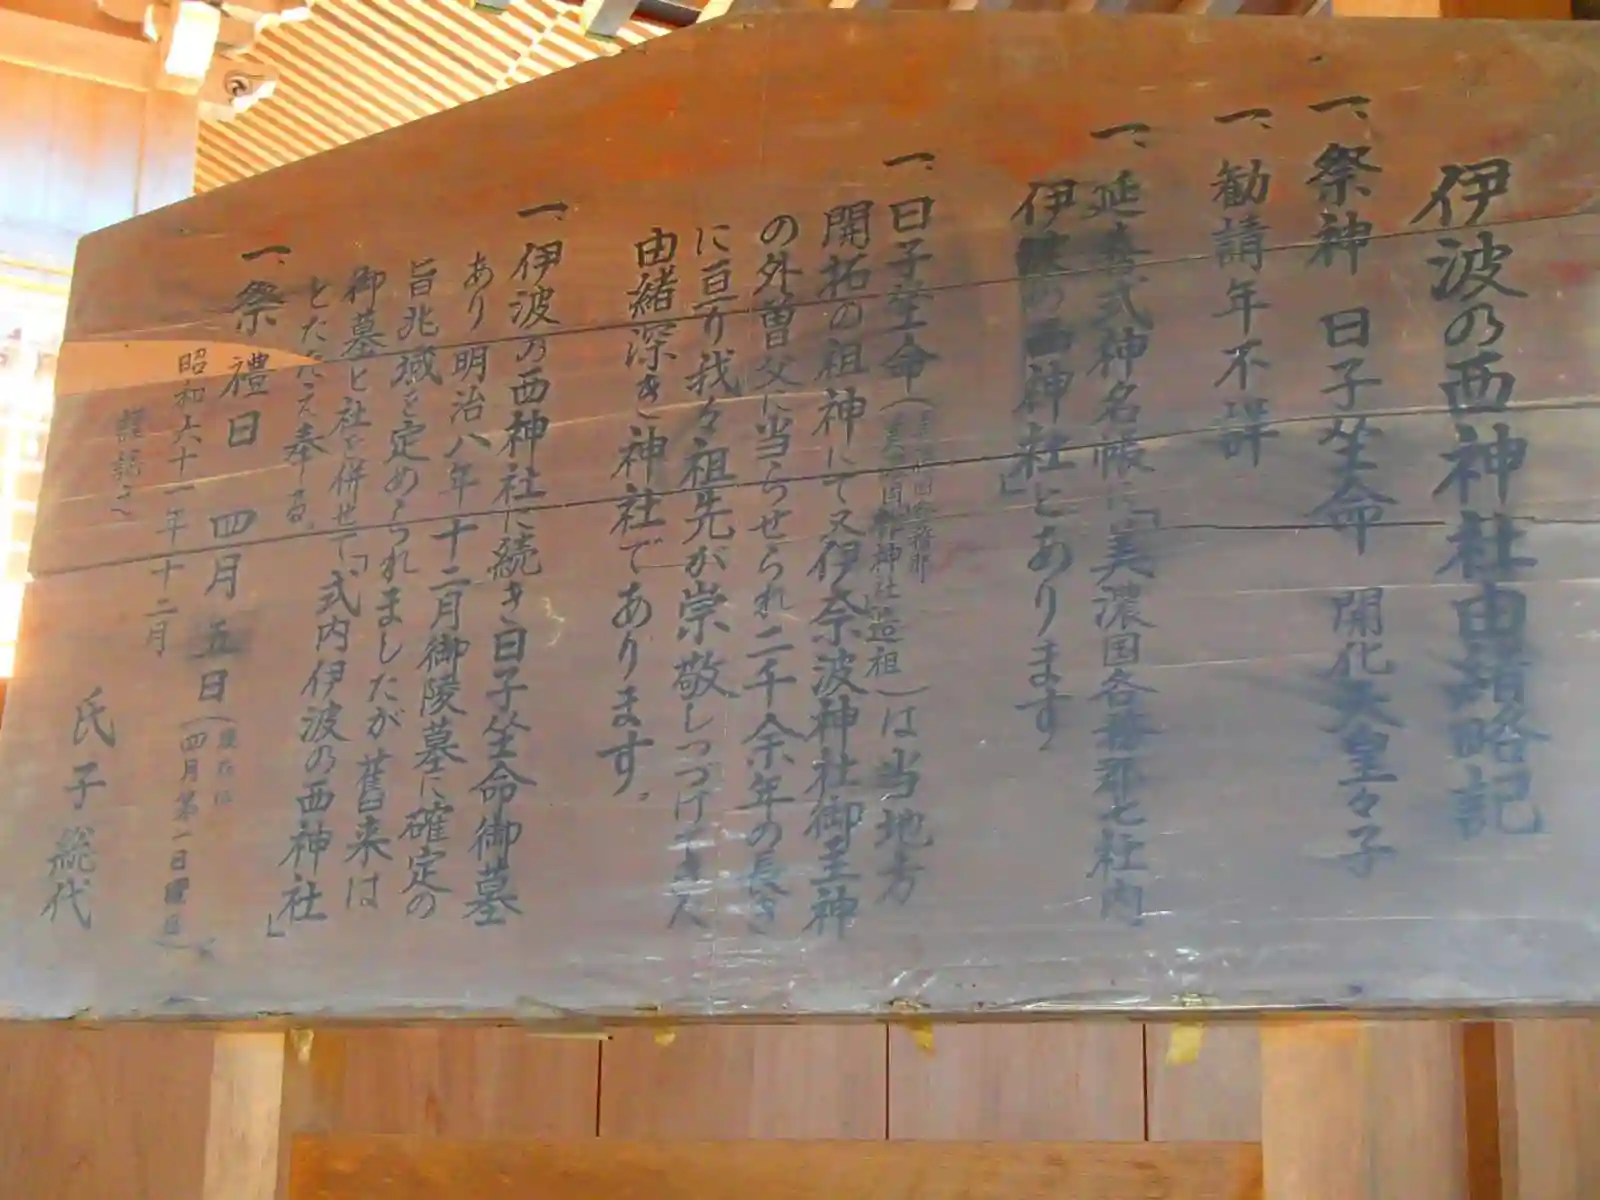 伊波乃西神社由緒略記
一、祭神 日子坐命 開化天皇々子
一、勧請年不詳
一、延喜式神名帳に「美濃国各務郡七社内
伊波乃西神社」とあります
一、日子坐命(美濃国各務郡
美濃国神神社造祖)は当地方
開拓の祖神にて又伊奈波神社御主神
の外曽父に当らせられ二千余年の長き
に亘り我々祖先が崇敬しつづけてきた
由緒深き神社であります。
一、伊波乃西神社に続き日子坐命御墓
あり明治八年十二月御陵墓に確定の
旨兆域を定められましたが舊来は
御墓と社を併せて「式内伊波乃西神社」
とたたえ奉る。
一、祭禮日 四月五日(現在は
四月第一日曜日)
昭和六十一年十二月
謹記之
氏子総代